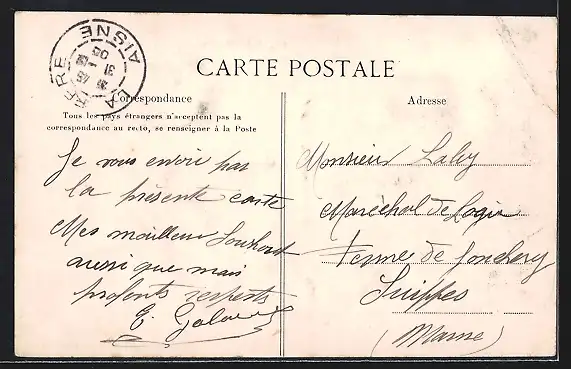 CARTE POSTALE
Correspondance
Tous les pays étrangers n'acceptent pas la
correspondance au recto, se renseigner à la Poste
Je vous envoie par
la présente carte
Mes meilleur Souhait
aussi que mais
profonts respects
E.
Adresse
Monsieur Laby
Maréchal de Logis
Ferme de Jonchery
Suippes
(Marne)
AISNE